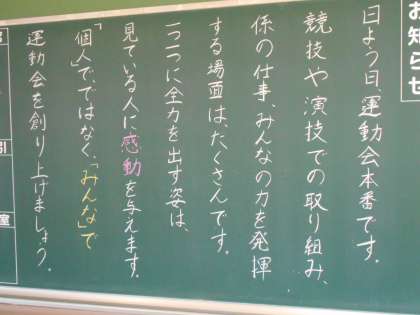 お知らせ
日よう日、運動会本番です。
競技や演技での取り組み、
係の仕事、みんなの力を発揮
する場面は、たくさんです。
一つ一つに全力を出す姿は、
見ている人に感動を与えます。
「個人」で、ではなく、「みんな」で
運動会を創り上げましょう。
引
室